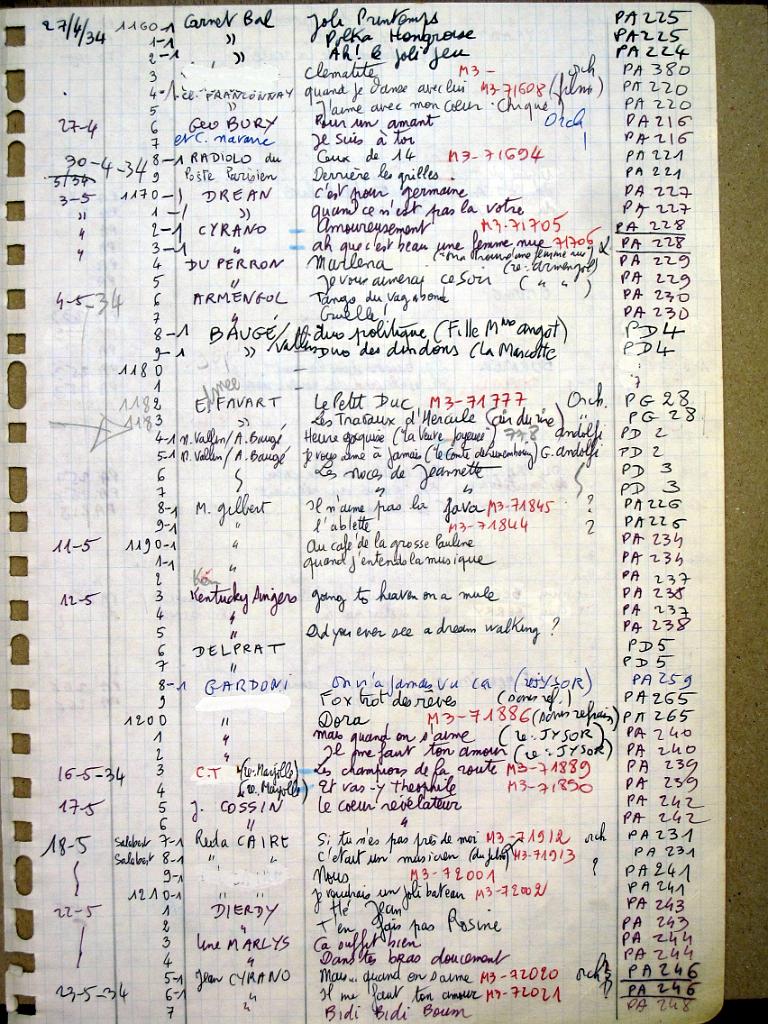 27/4/34 1160-1 Carnet Bal Joli Printemps PA 225
1-1 " Polka Hongroise PA 225
2-1 " Ah! le joli jeu PA 224
3 Clematite M3- orch PA 380
4-1 Cl. FRANCONNAY quand je danse avec lui M3-71608 (films) PA 220
5 " J'aime avec mon coeur PA 220
27-4 6 Geo BURY Pour un amant Orch PA 216
7 et C. navarre Je suis à toi PA 216
30-4-34 8-1 RADIOLO du Ceux de 14 M3-71694 PA 221
3/34 9 Poste Parisien Derrière les grilles PA 221
3-5 1170-1 DREAN c'est pour germaine PA 227
" 1-1 " quand ce n'est pas la votre PA 227
" 2-1 CYRANO Amoureusement M3-71705 PA 228
" 3-1 " ah que c'est beau une femme nue 71706 PA 228
4 DU PERRON Marilena (re: Armengol) PA 229
5 " Je vous aimerai ce soir ( " " ) PA 229
4-5-34 6 ARMENGOL Tango du vagabond PA 230
7 " Cruelle! PA 230
8-1 BAUGÉ/Vallin duo politique (Fille Mme angot) PD 4
9-1 " Duo des dindons (La Mascotte PD 4
1180
1
1182 E. FAVART Le Petit Duc M3-71777 Orch. PG 28
1183 3 " Les Travaux d'Hercule " PG 28
4-1 N. Vallin/A. Baugé Heure exquise (la Veuve joyeuse) 778 andolfi PD 2
5-1 N. Vallin/A. Baugé je vous aime à jamais (le Comte de Luxembourg) G. andolfi PD 2
6 Les noces de Jeannette PD 3
7 " " PD 3
8-1 M. gilbert Il n'aime pas la Java M3-71845 ? PA 226
9-1 " l'ablette M3-71844 ? PA 226
11-5 1190-1 " Au café de la grosse Pauline PA 234
1-1 " quand j'entends la musique PA 234
2 PA 237
12-5 3 Kentucky Singers going to heaven on a mule PA 238
4 " PA 237
5 " Did you ever see a dream walking? PA 238
6 DELPRAT PD 5
7 " PD 5
8-1 GARDONI On n'a jamais vu ça (JYSOR) PA 259
9 Fox trot des rêves (sans ref.) PA 265
1200 " Dora M3-71886 (sans refrain) PA 265
1 " mais quand on s'aime (re: JYSOR) PA 240
2 " Il me faut ton amour (re: JYSOR) PA 240
16-5-34 3 C.T (re: Marjolle) Les champions de la route M3-71889 PA 239
4 (re: Marjolle) Et vas-y Theophile M3-71890 PA 239
17-5 5 J. COSSIN Le coeur révélateur PA 242
6 " " PA 242
18-5 Salabert 7-1 Reda CAIRE Si tu n'es pas près de moi M3-71912 orch PA 231
Salabert 8-1 " " C'était un musicien (du film) M3-71913 PA 231
9-1 Nous M3-72001 ? PA 241
1210-1 Je voudrais un joli bateau M3-72002 PA 241
22-5 1 DIERDY Hé Jean PA 243
2 " T'en fais pas Rosine PA 243
3 Line MARLYS Ca suffit bien PA 244
4 " Dans tes bras doucement PA 244
5-1 Jean CYRANO Mais.. quand on s'aime M3-72020 orch? PA 246
23-5-34 6-1 " Il me faut ton amour M3-72021 ? PA 246
7 " Bidi Bidi Boum PA 248